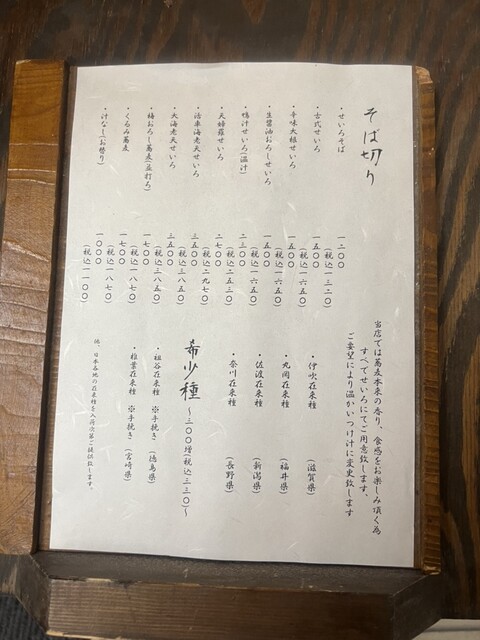 そば切り
・せいろそば
一二〇〇
(税込一三二〇)
・古式せいろ
一五〇〇
(税込一六五〇)
・辛味大根せいろ
一五〇〇
(税込一六五〇)
・生醤油おろしせいろ
一五〇〇
(税込一六五〇)
・鴨汁せいろ(温汁)
二三〇〇
(税込二五三〇)
・天婦羅せいろ
二七〇〇
(税込二九七〇)
・活車海老天せいろ
三五〇〇
(税込三八五〇)
・大海老天せいろ
三五〇〇
(税込三八五〇)
・梅おろし蕎麦(並打ち)
一七〇〇
(税込一八七〇)
・くるみ蕎麦
一七〇〇
(税込一八七〇)
・汁なし(お替り)
一〇〇〇
(税込一一〇〇)
当店では蕎麦本来の香り、食感をお楽しみ頂く為
すべてせいろにてご用意致します。
ご要望により温かいつけ汁に変更致します
・伊吹在来種 (滋賀県)
・丸岡在来種 (福井県)
・佐渡在来種 (新潟県)
・奈川在来種 (長野県)
希少種 ~三〇〇増(税込三三〇)~
・祖谷在来種 ※手挽き (徳島県)
・椎葉在来種 ※手挽き (宮崎県)
他、日本各地の在来種を入荷次第ご提供致します。